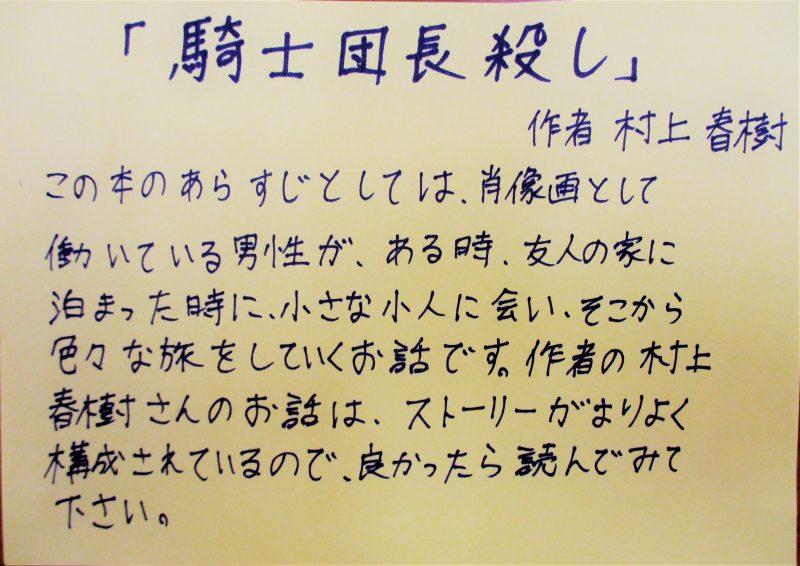 「騎士団長殺し」
作者 村上 春樹
この本のあらすじとしては、肖像画として
働いている男性が、ある時、友人の家に
泊まった時に、小さな小人に会い、そこから
色々な旅をしていくお話です。作者の村上
春樹さんのお話は、ストーリーがよりよく
構成されているので、良かったら読んでみて
下さい。